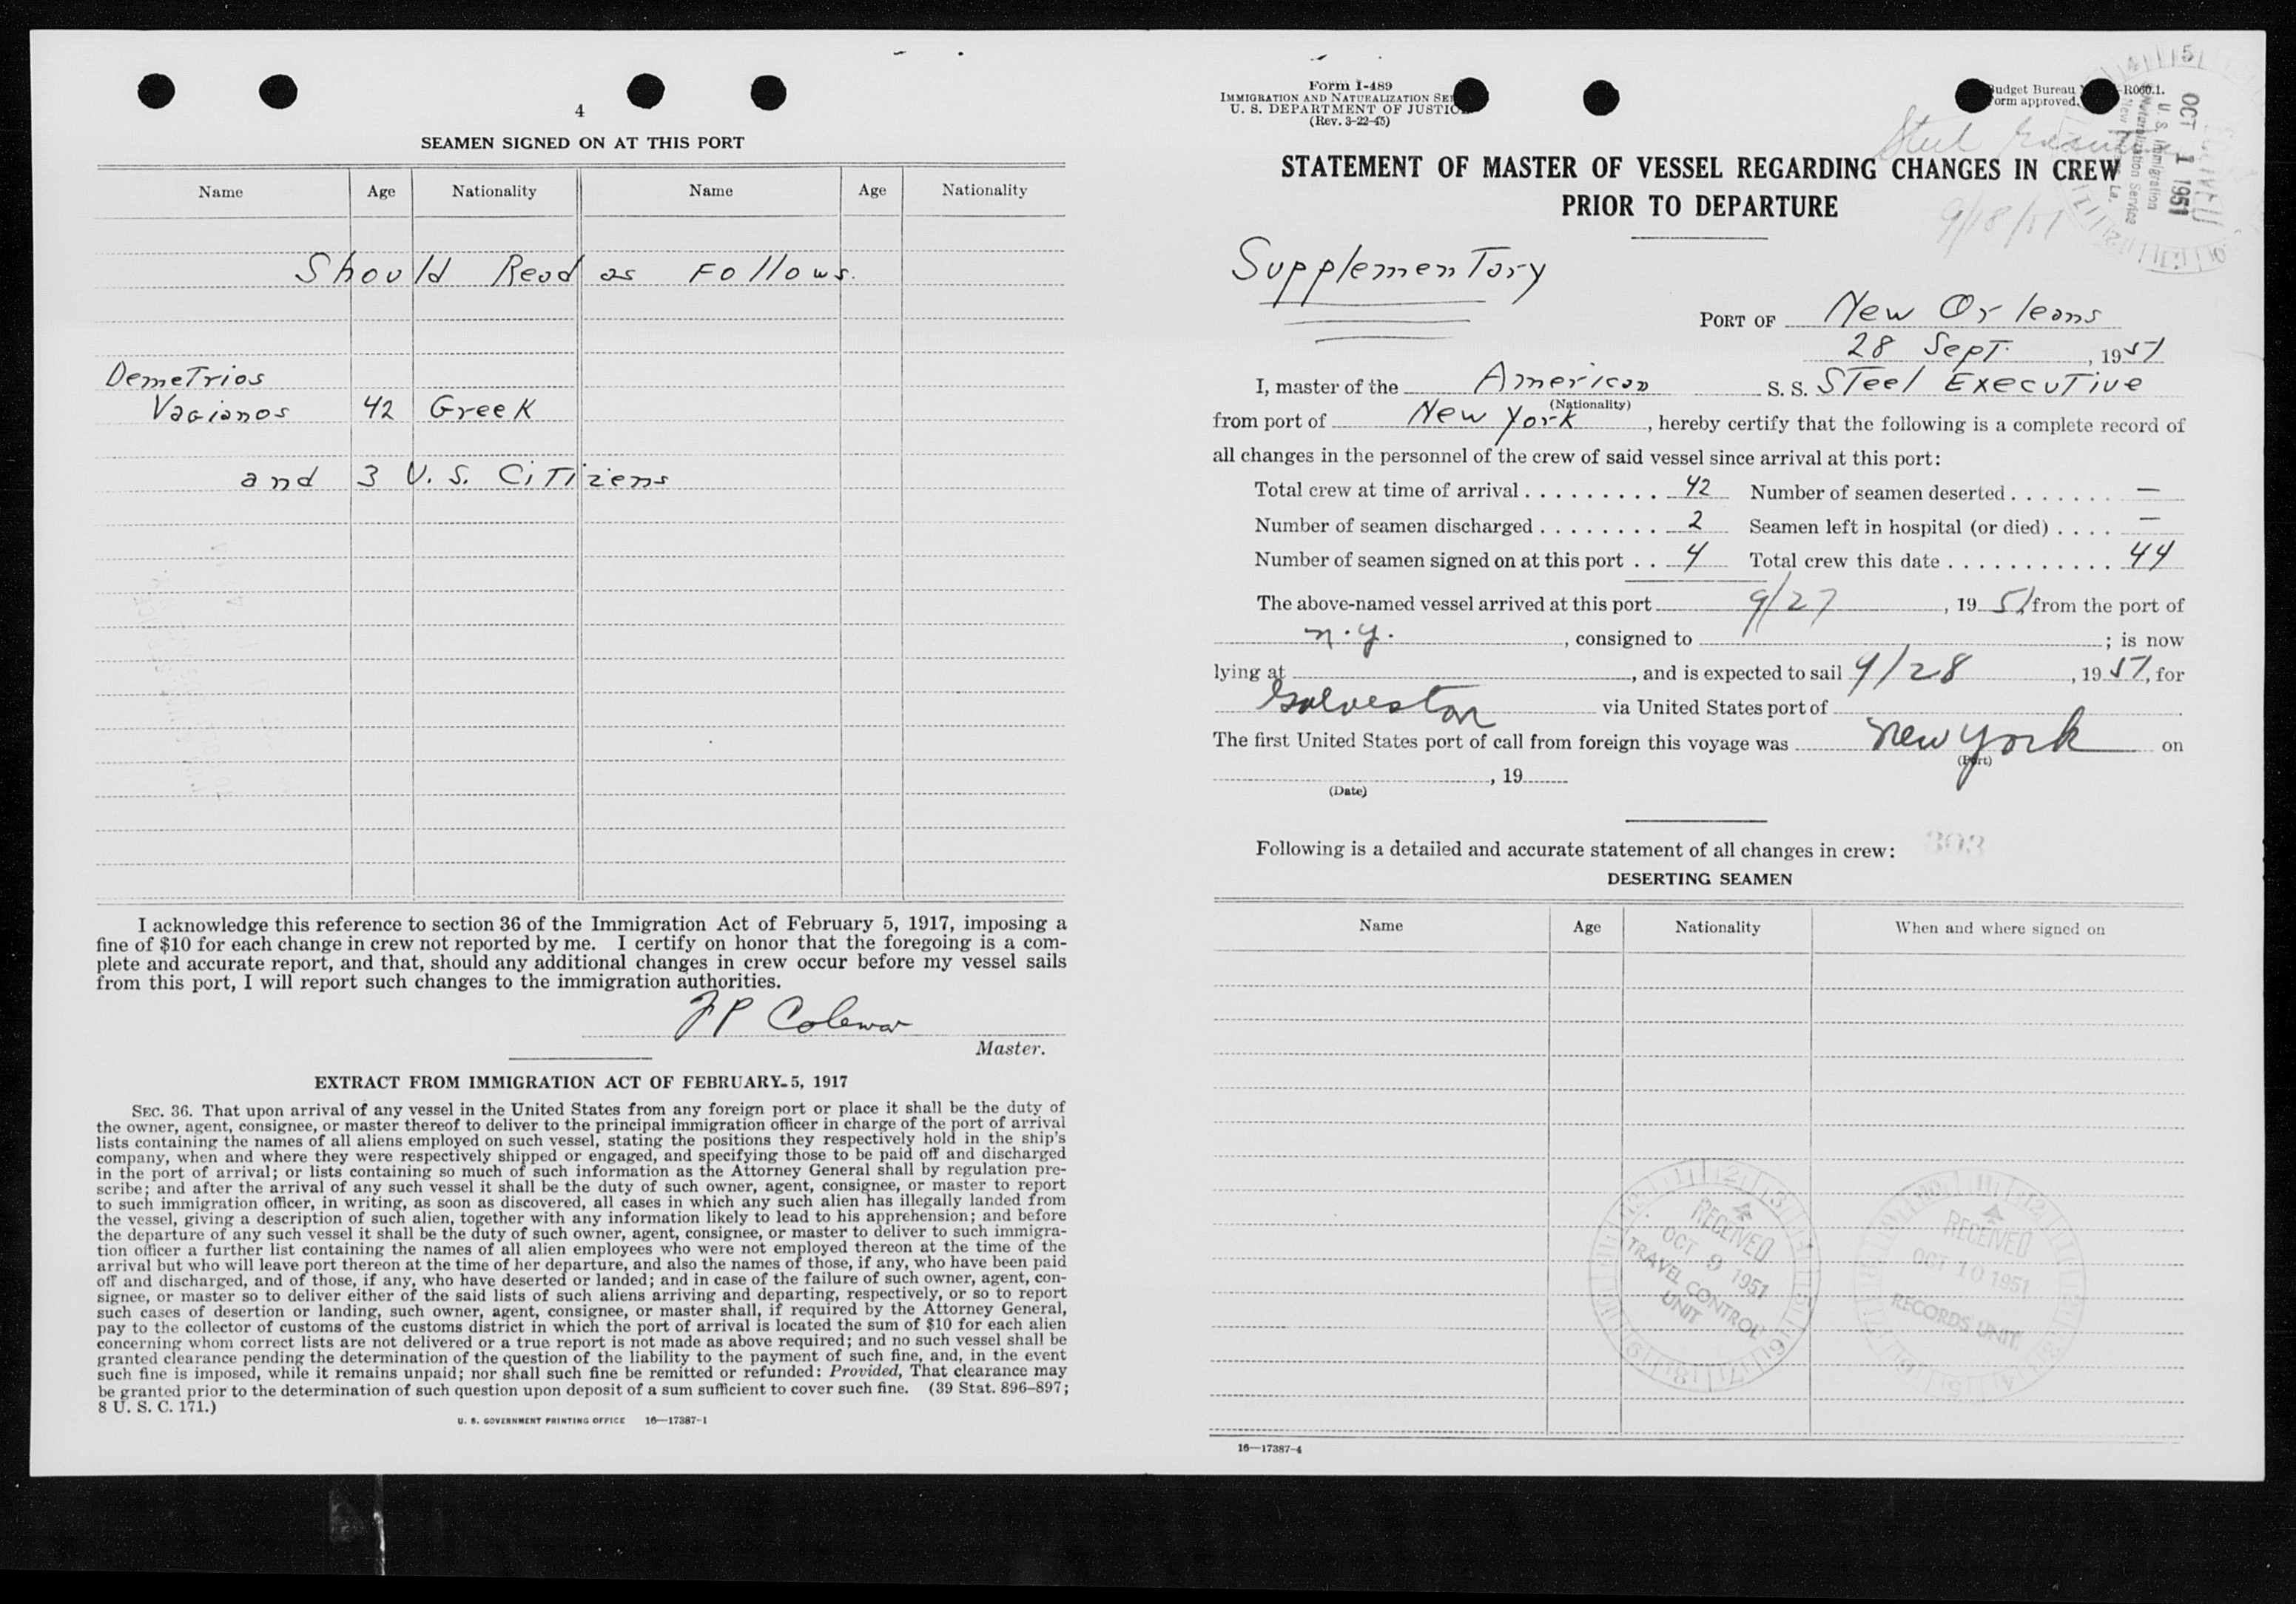 4
SEAMEN SIGNED ON AT THIS PORT
Name Age Nationality Name Age Nationality
Should Read as Follows.
Demetrios
Vagianos 42 Greek
and 3 U. S. Citizens
I acknowledge this reference to section 36 of the Immigration Act of February 5, 1917, imposing a
fine of $10 for each change in crew not reported by me. I certify on honor that the foregoing is a com-
plete and accurate report, and that, should any additional changes in crew occur before my vessel sails
from this port, I will report such changes to the immigration authorities.
J P Coleman
Master.
EXTRACT FROM IMMIGRATION ACT OF FEBRUARY 5, 1917
SEC. 36. That upon arrival of any vessel in the United States from any foreign port or place it shall be the duty of
the owner, agent, consignee, or master thereof to deliver to the principal immigration officer in charge of the port of arrival
lists containing the names of all aliens employed on such vessel, stating the positions they respectively hold in the ship's
company, when and where they were respectively shipped or engaged, and specifying those to be paid off and discharged
in the port of arrival; or lists containing so much of such information as the Attorney General shall by regulation pre-
scribe; and after the arrival of any such vessel it shall be the duty of such owner, agent, consignee, or master to report
to such immigration officer, in writing, as soon as discovered, all cases in which any such alien has illegally landed from
the vessel, giving a description of such alien, together with any information likely to lead to his apprehension; and before
the departure of any such vessel it shall be the duty of such owner, agent, consignee, or master to deliver to such immigra-
tion officer a further list containing the names of all alien employees who were not employed thereon at the time of the
arrival but who will leave port thereon at the time of her departure, and also the names of those, if any, who have been paid
off and discharged, and of those, if any, who have deserted or landed; and in case of the failure of such owner, agent, con-
signee, or master so to deliver either of the said lists of such aliens arriving and departing, respectively, or so to report
such cases of desertion or landing, such owner, agent, consignee, or master shall, if required by the Attorney General,
pay to the collector of customs of the customs district in which the port of arrival is located the sum of $10 for each alien
concerning whom correct lists are not delivered or a true report is not made as above required; and no such vessel shall be
granted clearance pending the determination of the question of the liability to the payment of such fine, and, in the event
such fine is imposed, while it remains unpaid; nor shall such fine be remitted or refunded: Provided, That clearance may
be granted prior to the determination of such question upon deposit of a sum sufficient to cover such fine. (39 Stat. 896–897;
8 U. S. C. 171.)
U. S. GOVERNMENT PRINTING OFFICE 16—17387-1
Form I-489
IMMIGRATION AND NATURALIZATION SE
U. S. DEPARTMENT OF JUSTIC
(Rev. 3-22-45)
Budget Bureau R060.1.
Form approved.
OCT 1 1951
U. S. Immigration
Naturalization Service
New Orleans, La.
Steel
9/18/51
STATEMENT OF MASTER OF VESSEL REGARDING CHANGES IN CREW
PRIOR TO DEPARTURE
Supplementory
PORT OF New Orleans
28 Sept. , 1951
I, master of the American S. S. Steel Executive
(Nationality)
from port of New York , hereby certify that the following is a complete record of
all changes in the personnel of the crew of said vessel since arrival at this port:
Total crew at time of arrival . . . . . . . . . 42 Number of seamen deserted . . . . . . . —
Number of seamen discharged . . . . . . . . 2 Seamen left in hospital (or died) . . . . —
Number of seamen signed on at this port . . 4 Total crew this date . . . . . . . . . . . 44
The above-named vessel arrived at this port 9/27 , 1951 from the port of
n.y. , consigned to ; is now
lying at , and is expected to sail 9/28 , 1951, for
Galveston via United States port of
The first United States port of call from foreign this voyage was New York on
(Port)
, 19
(Date)
Following is a detailed and accurate statement of all changes in crew: 303
DESERTING SEAMEN
Name Age Nationality When and where signed on
RECEIVED
OCT 9 1951
TRAVEL CONTROL
UNIT
RECEIVED
OCT 10 1951
RECORDS UNIT
16—17387-4